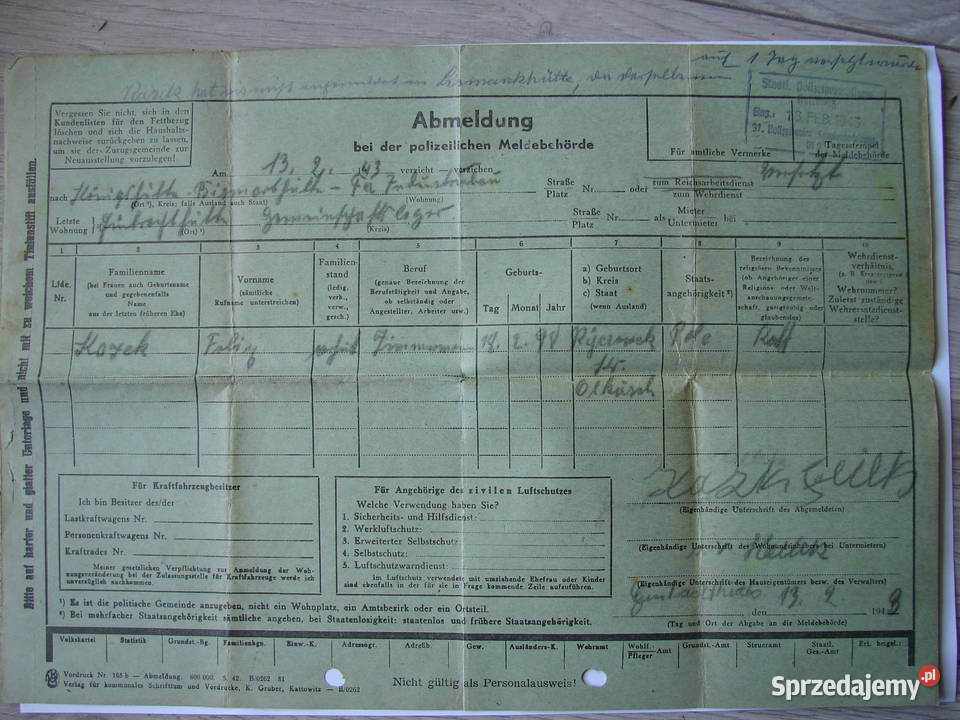 auf 1 Tag versetzt wurde
hat sich nicht angemeldet in Bismarkhütte, da derselbe nur
Vergessen Sie nicht, sich in den
Kundenlisten für den Fettbezug
löschen und sich die Haushalts-
nachweise zurückgeben zu lassen,
um sie der Zuzugsgemeinde zur
Neuausstellung vorzulegen!
Abmeldung
bei der polizeilichen Meldebehörde
Staatl. Polizeiverwaltung
Eing.: 13. FEB.
Für amtliche Vermerke
Tagesstempel
der Meldebehörde
Am 13. 2. 43 verzicht – verziehen
nach Königshütte - Bismarkhütte - Fa Industriebau
(Ort) ¹), Kreis; (falls Ausland auch Staat)
(Wohnung)
Straße
Platz Nr. oder zum Reichsarbeitsdienst versetzt
zum Wehrdienst
Letzte
Wohnung Eintrachthütte Gemeinschaftslager
(Ort) ¹)
(Kreis)
Straße
Platz Nr. als Mieter
Untermieter bei
1 2 3 4 5 6 7 8 9 10
Lfde.
Nr.
Familienname
(bei Frauen auch Geburtsname
und gegebenenfalls
Name
aus der letzten (früheren Ehe)
Vorname
(sämtliche
Rufname unterstreichen)
Familien-
stand
(ledig,
verh.,
verw.,
gesch.)
Beruf
(genaue Bezeichnung der
Berufstätigkeit und Angabe,
ob selbständig oder
Angestellter, Arbeiter usw.)
Geburts-
Tag Monat Jahr
a) Geburtsort
b) Kreis
c) Staat
(wenn Ausland)
Staats-
angehörigkeit ²)
Bezeichnung des
religiösen Bekenntnisses
(ob Angehöriger einer
Religions- oder Welt-
anschauungsgemein-
schaft, gottgläubig oder
glaubenslos)
Wehrdienst-
verhältnis,
Wehrnummer?
Zuletzt zuständige
Wehrersatzdienst-
stelle?
Kozek Feliz verh. Zimmermann 18. 2. 98 Pole Kath
Kr.
Olkusch
Bitte auf harter und glatter Unterlage und nicht mit zu weichem Tintenstift ausfüllen.
Für Kraftfahrzeugbesitzer
Ich bin Besitzer des/der
Lastkraftwagens Nr.
Personenkraftwagens Nr.
Kraftrades Nr.
Meiner gesetzlichen Verpflichtung zur Anmeldung der Woh-
nungsveränderung bei der Zulassungsstelle für Kraftfahrzeuge werde ich
unverzüglich nachkommen.
Für Angehörige des zivilen Luftschutzes
Welche Verwendung haben Sie?
1. Sicherheits- und Hilfsdienst:
2. Werkluftschutz:
3. Erweiterter Selbstschutz:
4. Selbstschutz:
5. Luftschutzwarndienst:
Im Luftschutz verwendete mit umziehende Ehefrau oder Kinder
sind ebenfalls in der für sie in Frage kommende Zeile aufzuführen.
(Eigenhändige Unterschrift des Abgemeldeten)
(Eigenhändige Unterschrift des Wohnungsgebers bei Untermietern)
(Eigenhändige Unterschrift des Hauseigentümers bezw. des Verwalters)
Eintrachthütte, den 13. 2. 1943
(Tag und Ort der Abgabe an die Meldebehörde)
¹) Es ist die politische Gemeinde anzugeben, nicht ein Wohnplatz, ein Amtsbezirk oder ein Ortsteil.
²) Bei mehrfacher Staatsangehörigkeit sämtliche angeben, bei Staatenlosigkeit: staatenlos und frühere Staatsangehörigkeit.
Volkskartei Statistik Grundst.-Bg. Familienbgn. Einw.-K. Adressogr. Adreßb. Gew. Ausländers-K. Wehramt Wohlf.-Pfleger Amt Grundst.-Amt Steueramt Staatl. Ges.-Amt Erl. beigel.:
Vordruck Nr. 103 b — Abmeldung. 600 000. 5. 42. B/0262 81
Verlag für kommunales Schrifttum und Vordrucke, K. Gruber, Kattowitz — B/0262
Nicht gültig als Personalausweis!
Sprzedajemy.pl